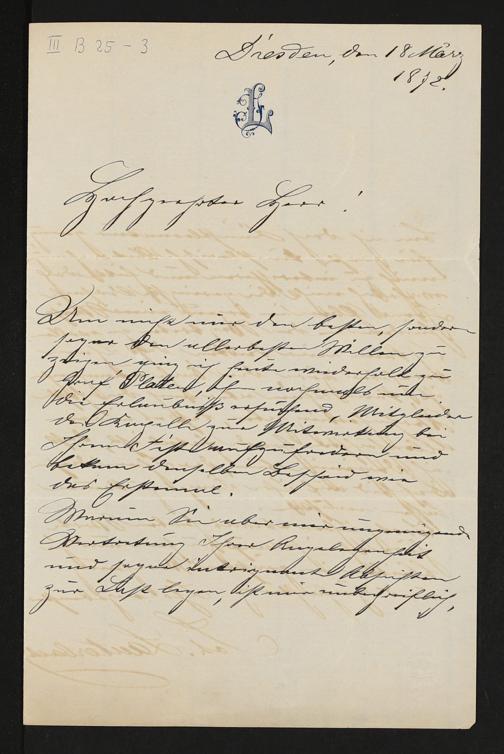 III B 25 - 3
Dresden, den 18 März
1872.
L
Hochgeehrter Herr!
Um nicht nur den besten, sondern
sogar den allerbesten Willen zu
zeigen ging ich heute wiederholt zu
Graf Platen, ihn nochmals um
die Erlaubniß ersuchend, Mitglieder
der Kapelle zur Mitwirkung bei
Ihrem Feste aufzufordern und
bekam denselben Bescheid wie
das Erstemal.
Warum Sie aber mir ungenügende
Vertretung Ihrer Angelegenheit
und sogar intriguante Absichten
zur Last legen, ist mir unbegreiflich,